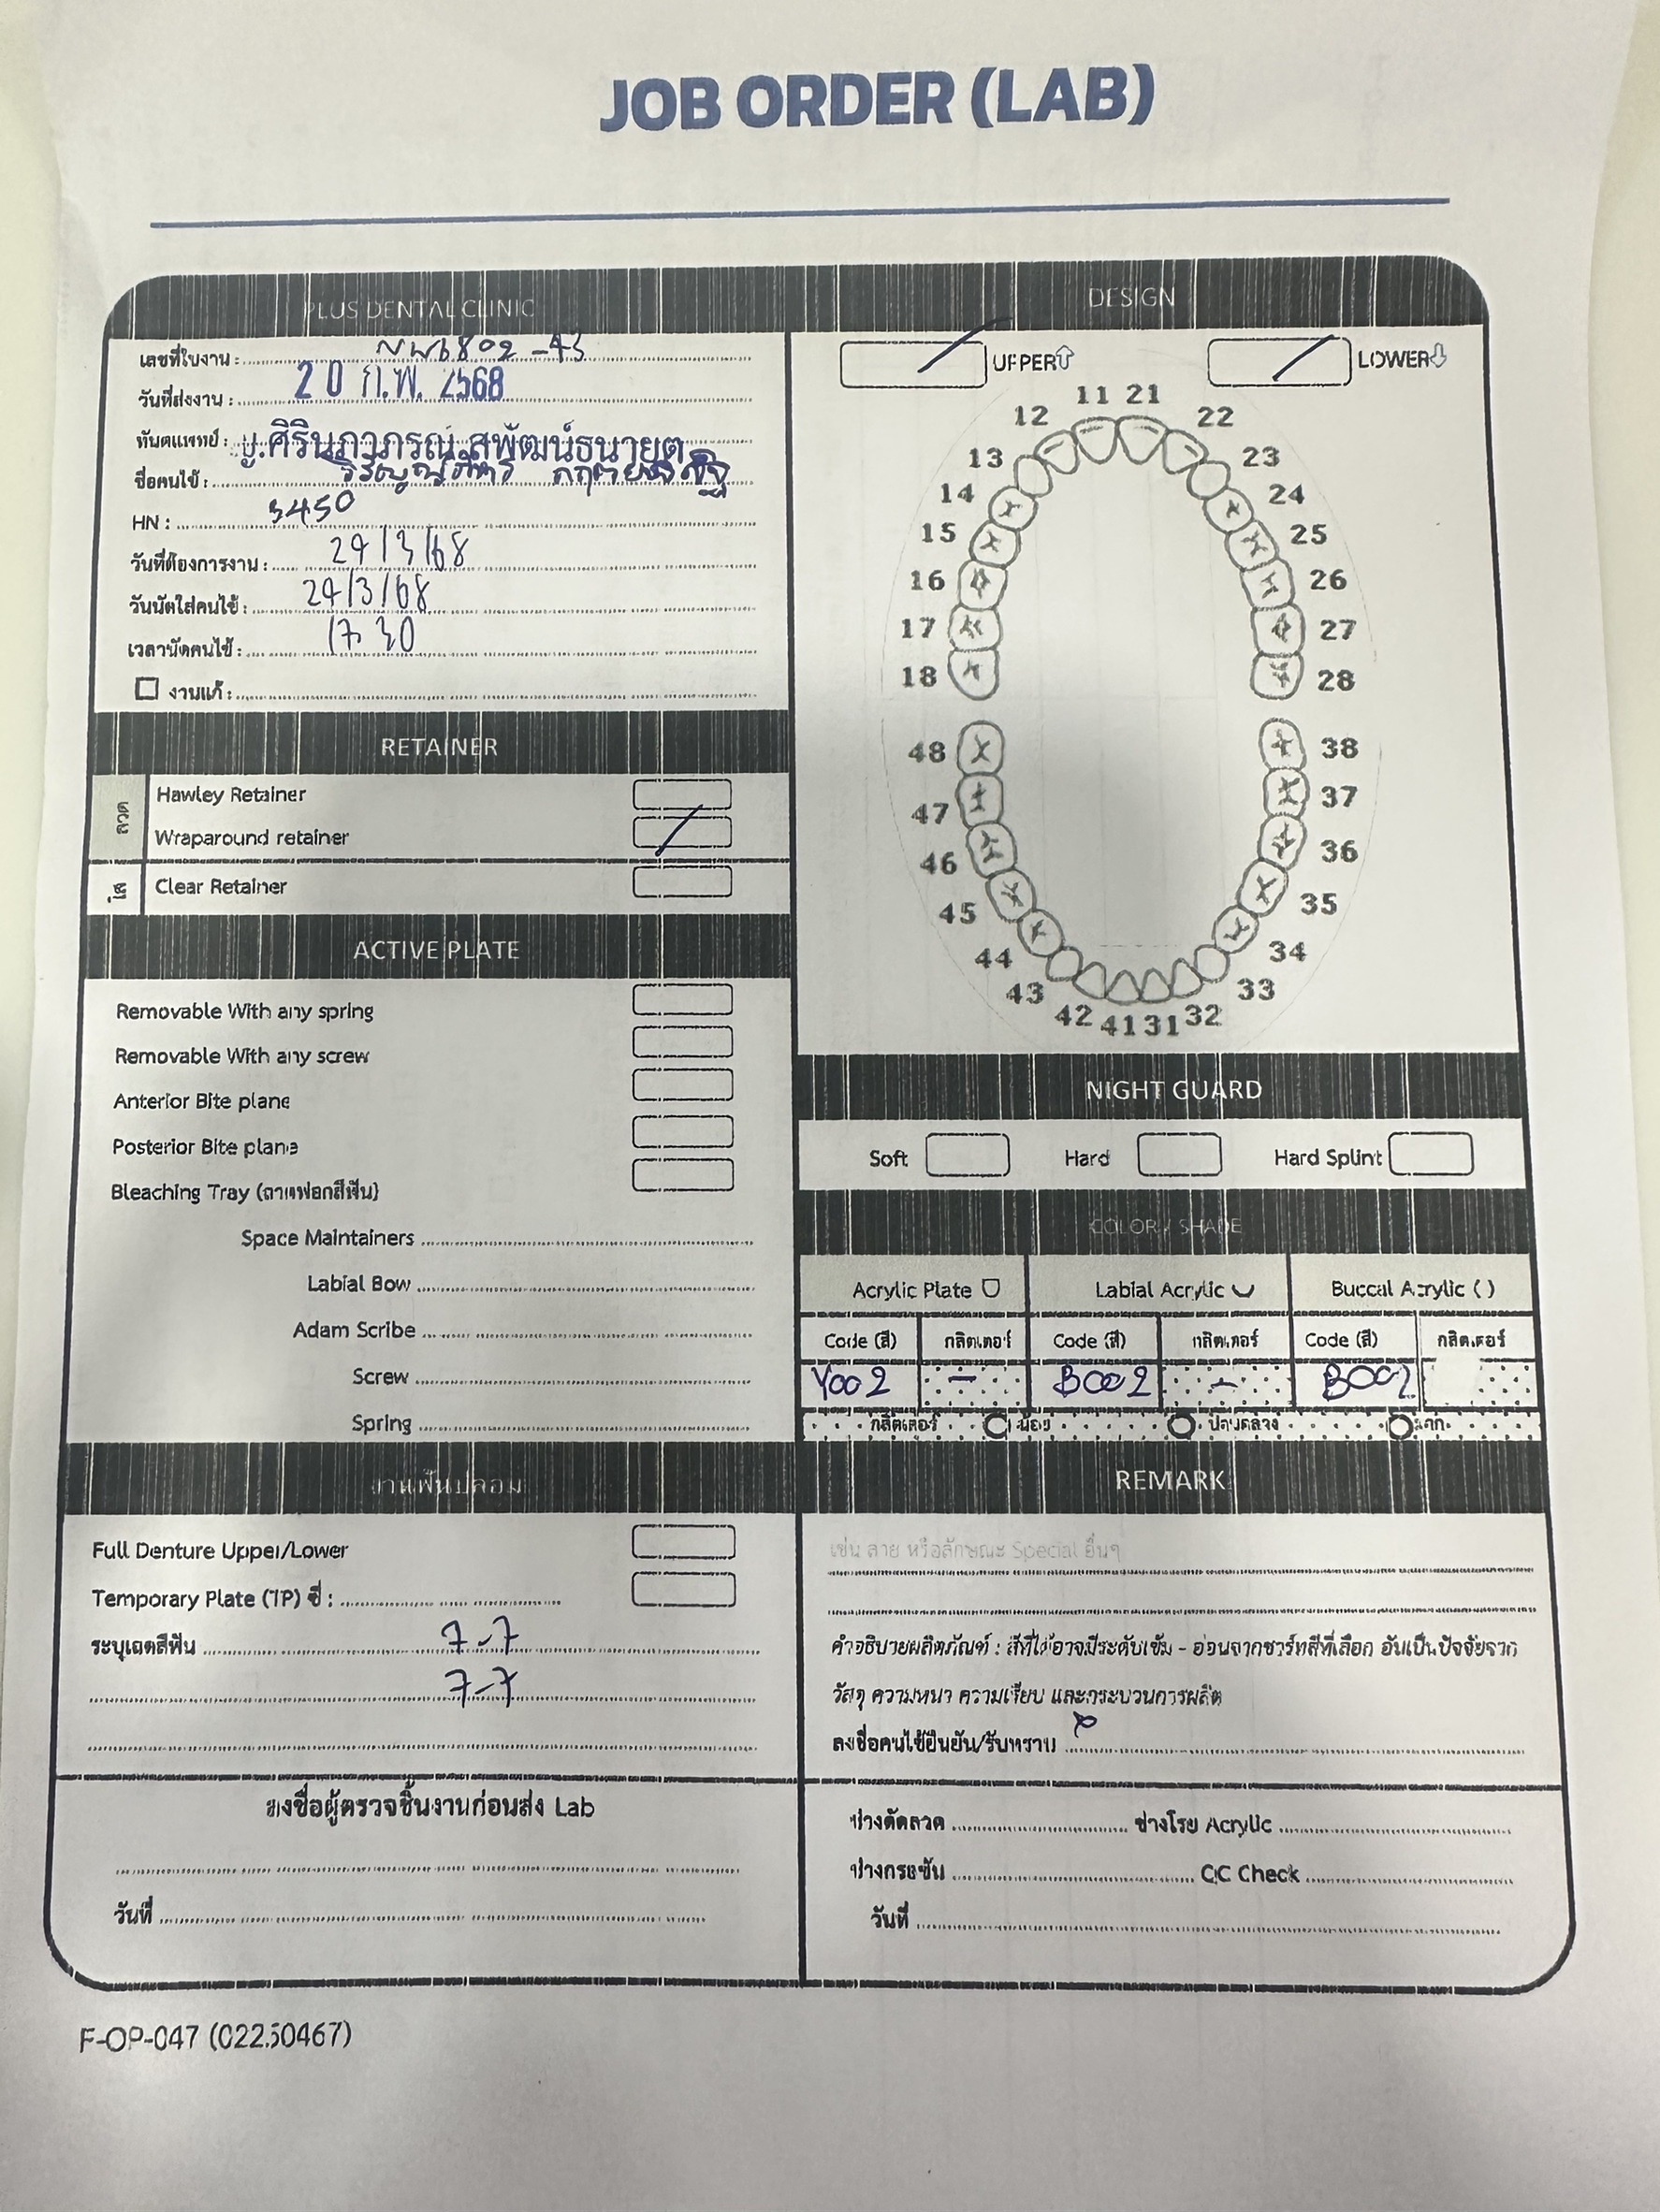 JOB ORDER (LAB)
PLUS DENTAL CLINIC
เลขที่ใบงาน : 6802-43
วันที่ส่งงาน : 20 ก.พ. 2568
ทันตแพทย์ : ญ.ศิรินภาภรณ์ สุพัฒน์ธนายุต
ชื่อคนไข้ :
HN : 3450
วันที่ต้องการงาน : 29/3/68
วันนัดใส่คนไข้ : 29/3/68
เวลานัดคนไข้ : 17.30
งานแก้ :
RETAINER
ลวด
Hawley Retainer
Wraparound retainer
ใส
Clear Retainer
ACTIVE PLATE
Removable With any spring
Removable With any screw
Anterior Bite plane
Posterior Bite plane
Bleaching Tray (ถาดฟอกสีฟัน)
Space Maintainers
Labial Bow
Adam Scribe
Screw
Spring
งานฟันปลอม
Full Denture Upper/Lower
Temporary Plate (TP) ซี่ :
ระบุเฉดสีฟัน 7-7
7-7
ลงชื่อผู้ตรวจชิ้นงานก่อนส่ง Lab
วันที่
DESIGN
UPPER LOWER
11 21
12 22
13 23
14 24
15 25
16 26
17 27
18 28
48 38
47 37
46 36
45 35
44 34
43 33
42 41 31 32
NIGHT GUARD
Soft Hard Hard Splint
COLOR / SHADE
Acrylic Plate Labial Acrylic Buccal Acrylic ( )
Code (สี) กลิตเตอร์ Code (สี) กลิตเตอร์ Code (สี) กลิตเตอร์
Y002 - B002 - B002
กลิตเตอร์ น้อย ปานกลาง มาก
REMARK
เช่น ลาย หรือลักษณะ Special อื่นๆ
คำอธิบายผลิตภัณฑ์ : สีที่ได้อาจมีระดับเข้ม - อ่อนจากชาร์ทสีที่เลือก อันเป็นปัจจัยจาก
วัสดุ ความหนา ความเรียบ และกระบวนการผลิต
ลงชื่อคนไข้ยืนยัน/รับทราบ
ช่างดัดลวด ช่างโรย Acrylic
ช่างกรอขัด QC Check
วันที่
F-OP-047 (02250467)